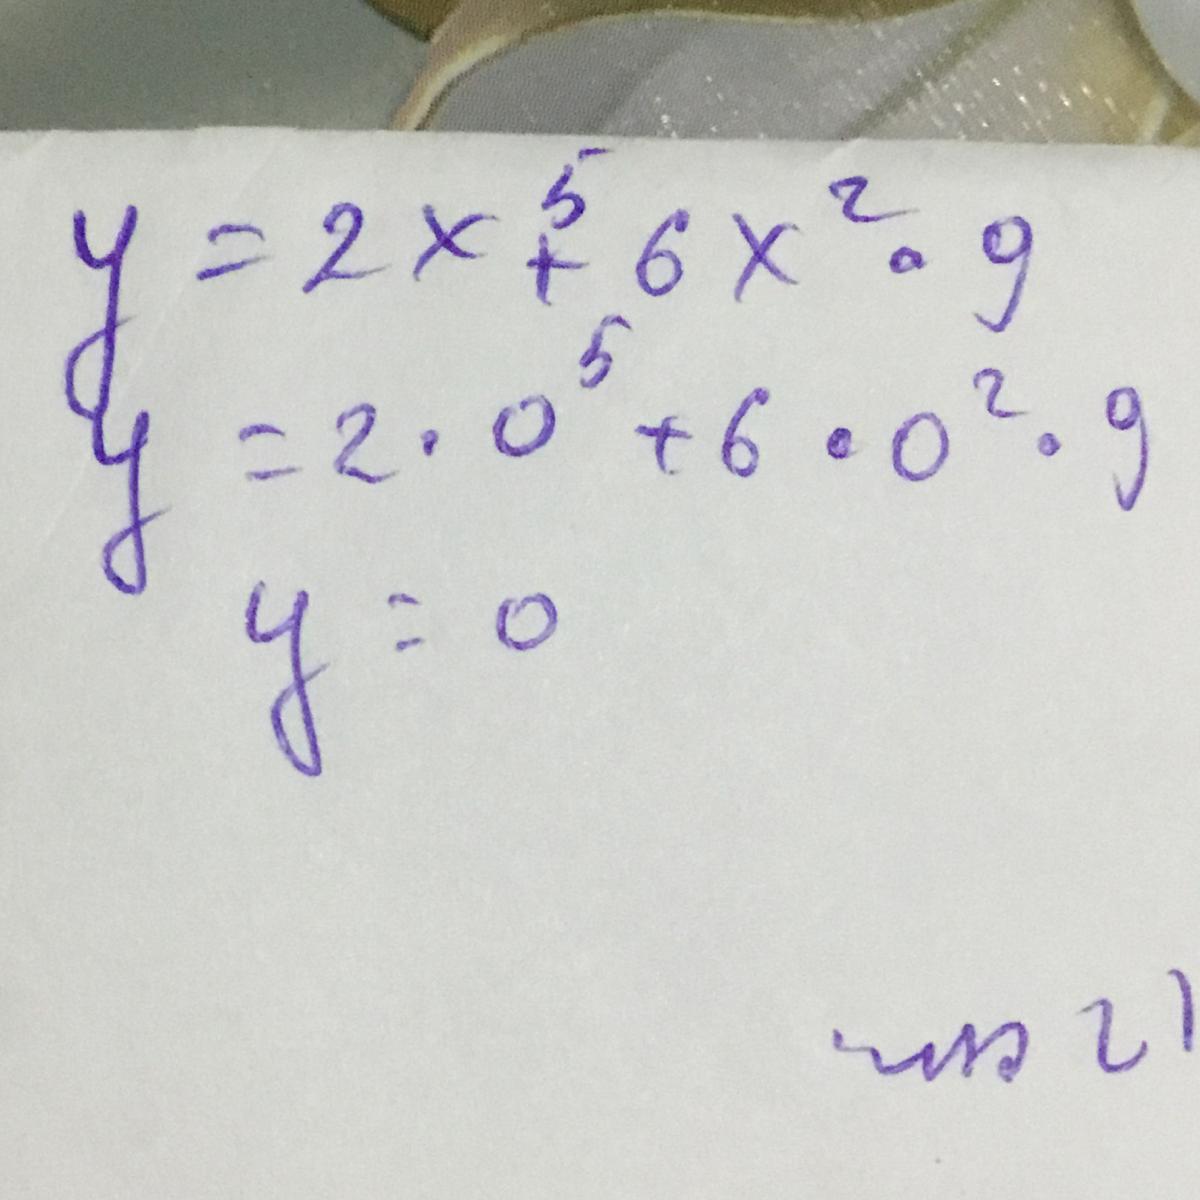 y = 2x⁵ + 6x² · 9
y = 2 · 0⁵ + 6 · 0² · 9
y = 0
21